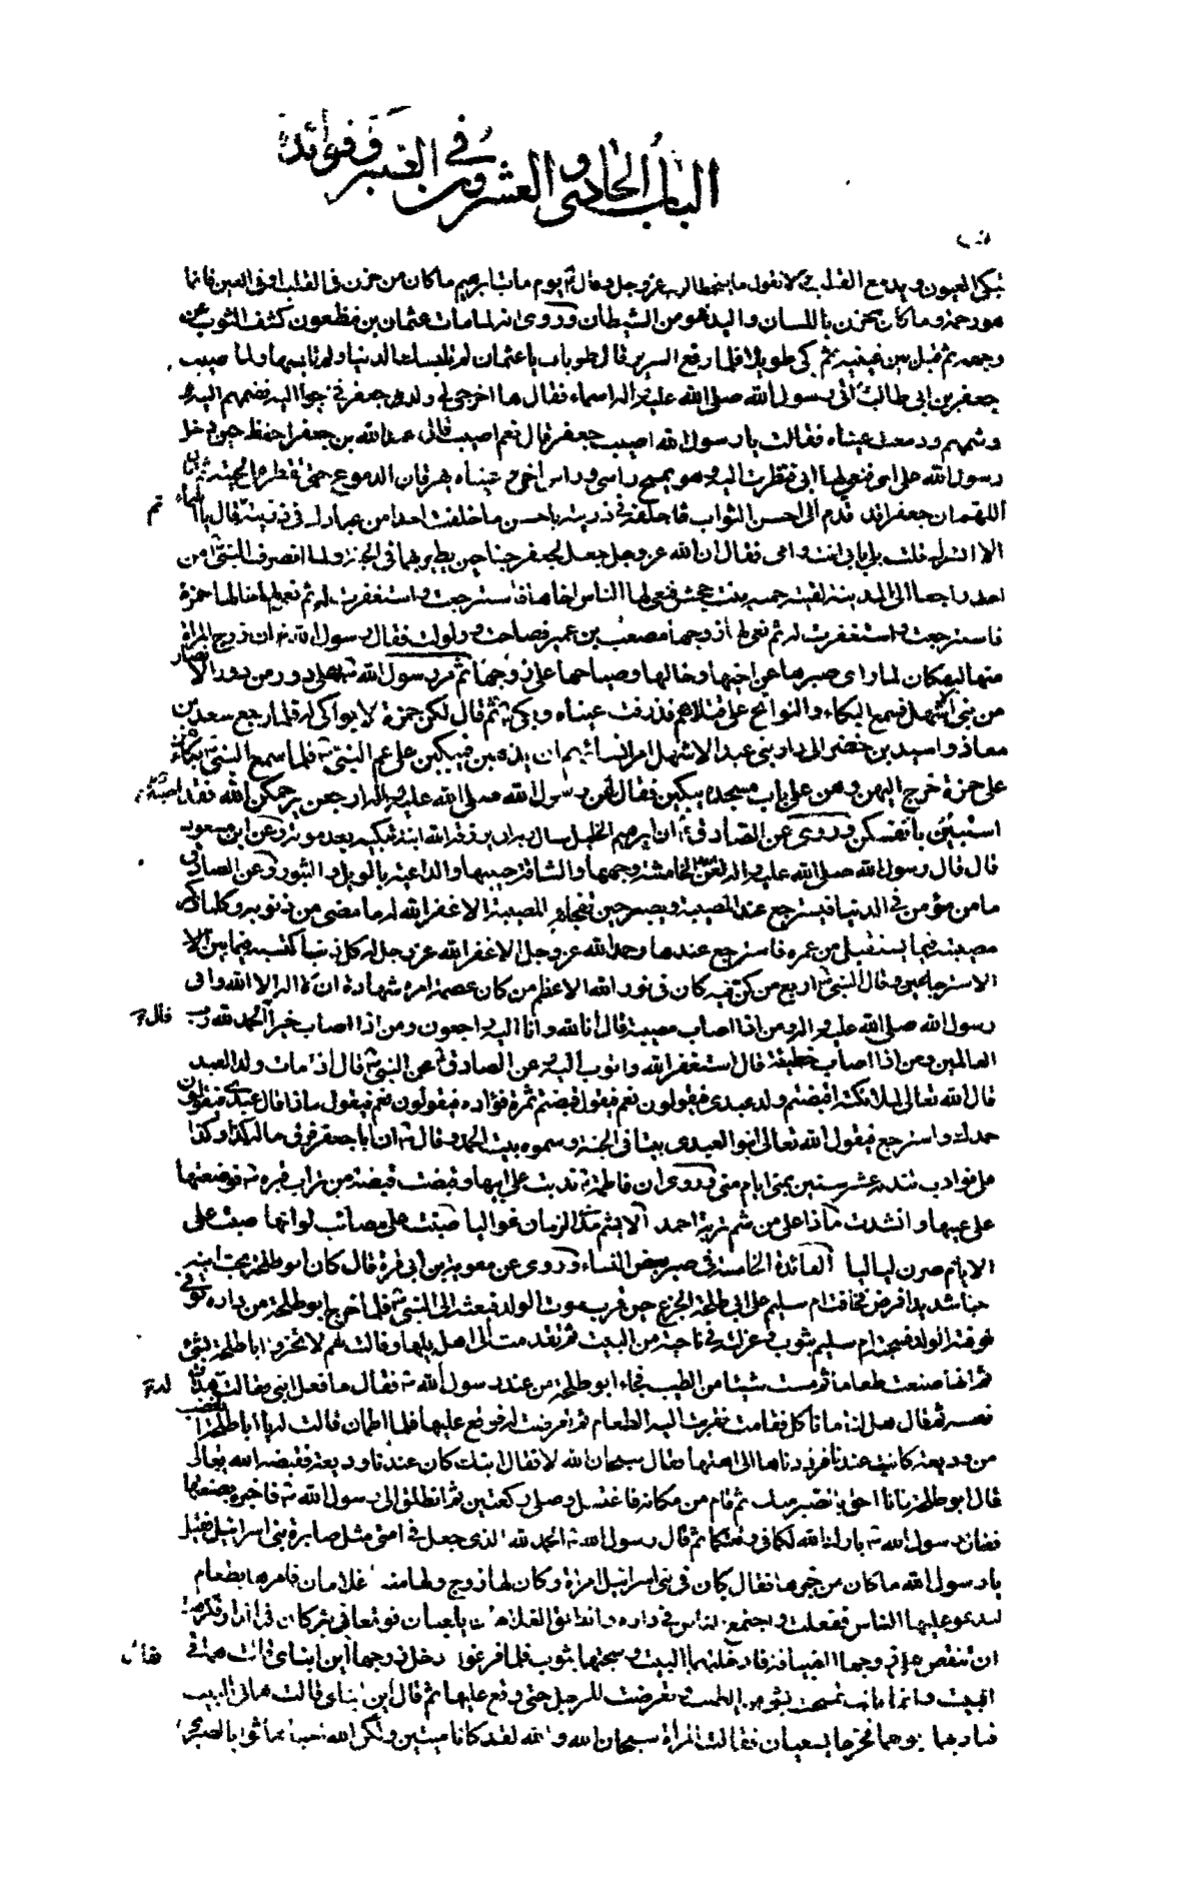 الباب الحادي والعشرون في الصبر وفوائده
تبكى العيون ويدمع القلب ولا نقول ما يسخط الرب عز وجل وقال يوم مات ابرهيم ما كان من حزن فى القلب او فى العين فانما
هو رحمة وما كان من حزن باللسان واليد فهو من الشيطان وروى انه لما مات عثمان بن مظعون كشف الثوب عن
وجهه ثم قبل بين عينيه ثم بكى طويلا فلما رفع السرير قال طوباك يا عثمان لم تلبسك الدنيا ولم تلبسها ولما اصيب
جعفر بن ابى طالب اتى رسول الله صلى الله عليه واله اسماء فقال لها اخرجى لى ولد جعفر فخرجوا اليه فضمهم اليه
وشمهم ودمعت عيناه فقالت يا رسول الله اصيب جعفر قال نعم اصيب قال عبد الله بن جعفر احفظ حين دخل
رسول الله على امى فنعى لها ابى فنظرت اليه وهو يمسح راسى وراس اخى وعيناه يهرقان الدموع حتى تقطر لحيته ثم قال
اللهم ان جعفرا قد قدم الى احسن الثواب فاخلفه فى ذريته باحسن ما خلفت احدا من عبادك فى ذريته ثم قال يا اسماء
الا ابشرك قلت بلى بابى انت وامى فقال ان الله عز وجل جعل لجعفر جناحين يطير بهما فى الجنة ولما انصرف النبى من
احد راجعا الى المدينة لقيته حمنه بنت جحش فنعى لها الناس اخاها فاسترجعت واستغفرت له ثم نعى لها خالها حمزة
فاسترجعت واستغفرت له ثم نعى لها زوجها مصعب بن عمير فصاحت وولولت فقال رسول الله ان زوج المراة
منها لبمكان لما راى صبرها عن اخيها وخالها وصياحها على زوجها ثم مر رسول الله على دور من دور الانصار
من بنى الاشهل فسمع البكاء والنوائح على قتلاهم فذرفت عيناه وبكى ثم قال لكن حمزة لا بواكى له فلما رجع سعد بن
معاذ واسيد بن حضير الى دار بنى عبد الاشهل امر نسائهم ان يذهبن فيبكين على عم النبى فلما سمع النبى بكائهن
على حمزة خرج اليهن وهن على باب مسجده يبكين فقال لهن رسول الله صلى الله عليه واله ارجعن يرحمكن الله فقد
بانفسكن وروى عن الصادق ان ابرهيم الخليل سال ربه ان يرزقه الله ابنة تبكيه بعد موته وعن ابن مسعود
قال قال رسول الله صلى الله عليه واله لعن الله الخامشة وجهها والشاقة جيبها والداعية بالويل والثبور وعن الصادق
ما من مؤمن فى الدنيا فيسترجع عند المصيبة ويصبر حين تفجاه المصيبة الا غفر الله له ما مضى من ذنوبه وكلما ذكر
مصيبة فيما يستقبل من عمره فاسترجع عندها وحمد الله عز وجل الا غفر الله عز وجل له كل ذنب اكتسبه فيما بين
الاسترجاعين وقال النبى اربع من كن فيه كان فى نور الله الاعظم من كان عصمة امره شهادة ان لا اله الا الله وانى
رسول الله صلى الله عليه واله ومن اذا اصابته مصيبة قال انا لله وانا اليه راجعون ومن اذا اصاب خيرا قال الحمد لله رب
العالمين ومن اذا اصاب خطيئة قال استغفر الله واتوب اليه عن الصادق عن النبى قال اذا مات ولد العبد
قال الله تعالى لملائكته اقبضتم ولد عبدى فيقولون نعم فيقول قبضتم ثمرة فؤاده فيقولون نعم فيقول ماذا قال عبدى فيقولون
حمدك واسترجع فيقول الله تعالى ابنوا لعبدى بيتا فى الجنة وسموه بيت الحمد وقال ان ابا جعفر فى مالى كذا وكذا
لنوادب تندبه عشر سنين بمنى ايام منى وروى ان فاطمة ندبت على ابيها وقبضت قبضة من تراب قبره فوضعتها
على عينها وانشدت ماذا على من شم تربة احمد الا يشم مدا الزمان غواليا صبت على مصائب لو انها صبت على
الايام صرن لياليا الفائدة الخامسة فى صبر بعض النساء وروى عن معوية بن ابى قرة قال كان ابو طلحة يحب ابنه
حبا شديدا فمرض فخافت ام سليم على ابى طلحة الجزع حين قرب موت الولد فبعثته الى النبى فلما خرج ابو طلحة من داره توفى
الولد فسجته ام سليم بثوب وعزلته فى ناحية من البيت ثم تقدمت الى اهل بيتها وقالت لهم لا تخبروا ابا طلحة بشئ
ثم انها صنعت طعاما ثم مست شيئا من الطيب فجاء ابو طلحة من عند رسول الله فقال ما فعل ابنى فقالت له هدأت
نفسه ثم قال هل لنا ما ناكل فقامت فقربت اليه الطعام ثم تعرضت له فوقع عليها فلما اطمان قالت له يا ابا طلحة اتغضب
من وديعة كانت عندنا فرددناها الى اهلها فقال سبحان الله لا فقال ابنك كان عندنا وديعة فقبضه الله تعالى
قال ابو طلحة فانا احق بالصبر منك ثم قام من مكانه فاغتسل وصلى ركعتين ثم انطلق الى رسول الله فاخبره بصنعها
فقال رسول الله بارك الله لكما فى وقعتكما ثم قال رسول الله الحمد لله الذى جعل فى امتى مثل صابرة بنى اسرائيل فقيل
يا رسول الله ما كان من خبرها فقال كان فى بنى اسرائيل امراة وكان لها زوج ولها منه غلامان فامرها بطعام
ليدعو عليها الناس ففعلت واجتمع الناس فى داره وانطلق الغلامان يلعبان فوقعا فى بئر كان فى الدار وكرهت
ان تنغص على زوجها الضيافة فادخلتهما البيت وسجتهما بثوب فلما فرغوا دخل زوجها فقال اين ابناى قالت هما فى
البيت وانها كانت تمسحت بشئ من الطيب وتعرضت للرجل حتى وقع عليها ثم قال اين ابناى قالت هما فى البيت
فناداهما ابوهما فخرجا يسعيان فقالت المراة سبحان الله والله لقد كانا ميتين ولكن الله احياهما ثوابا لصبرى